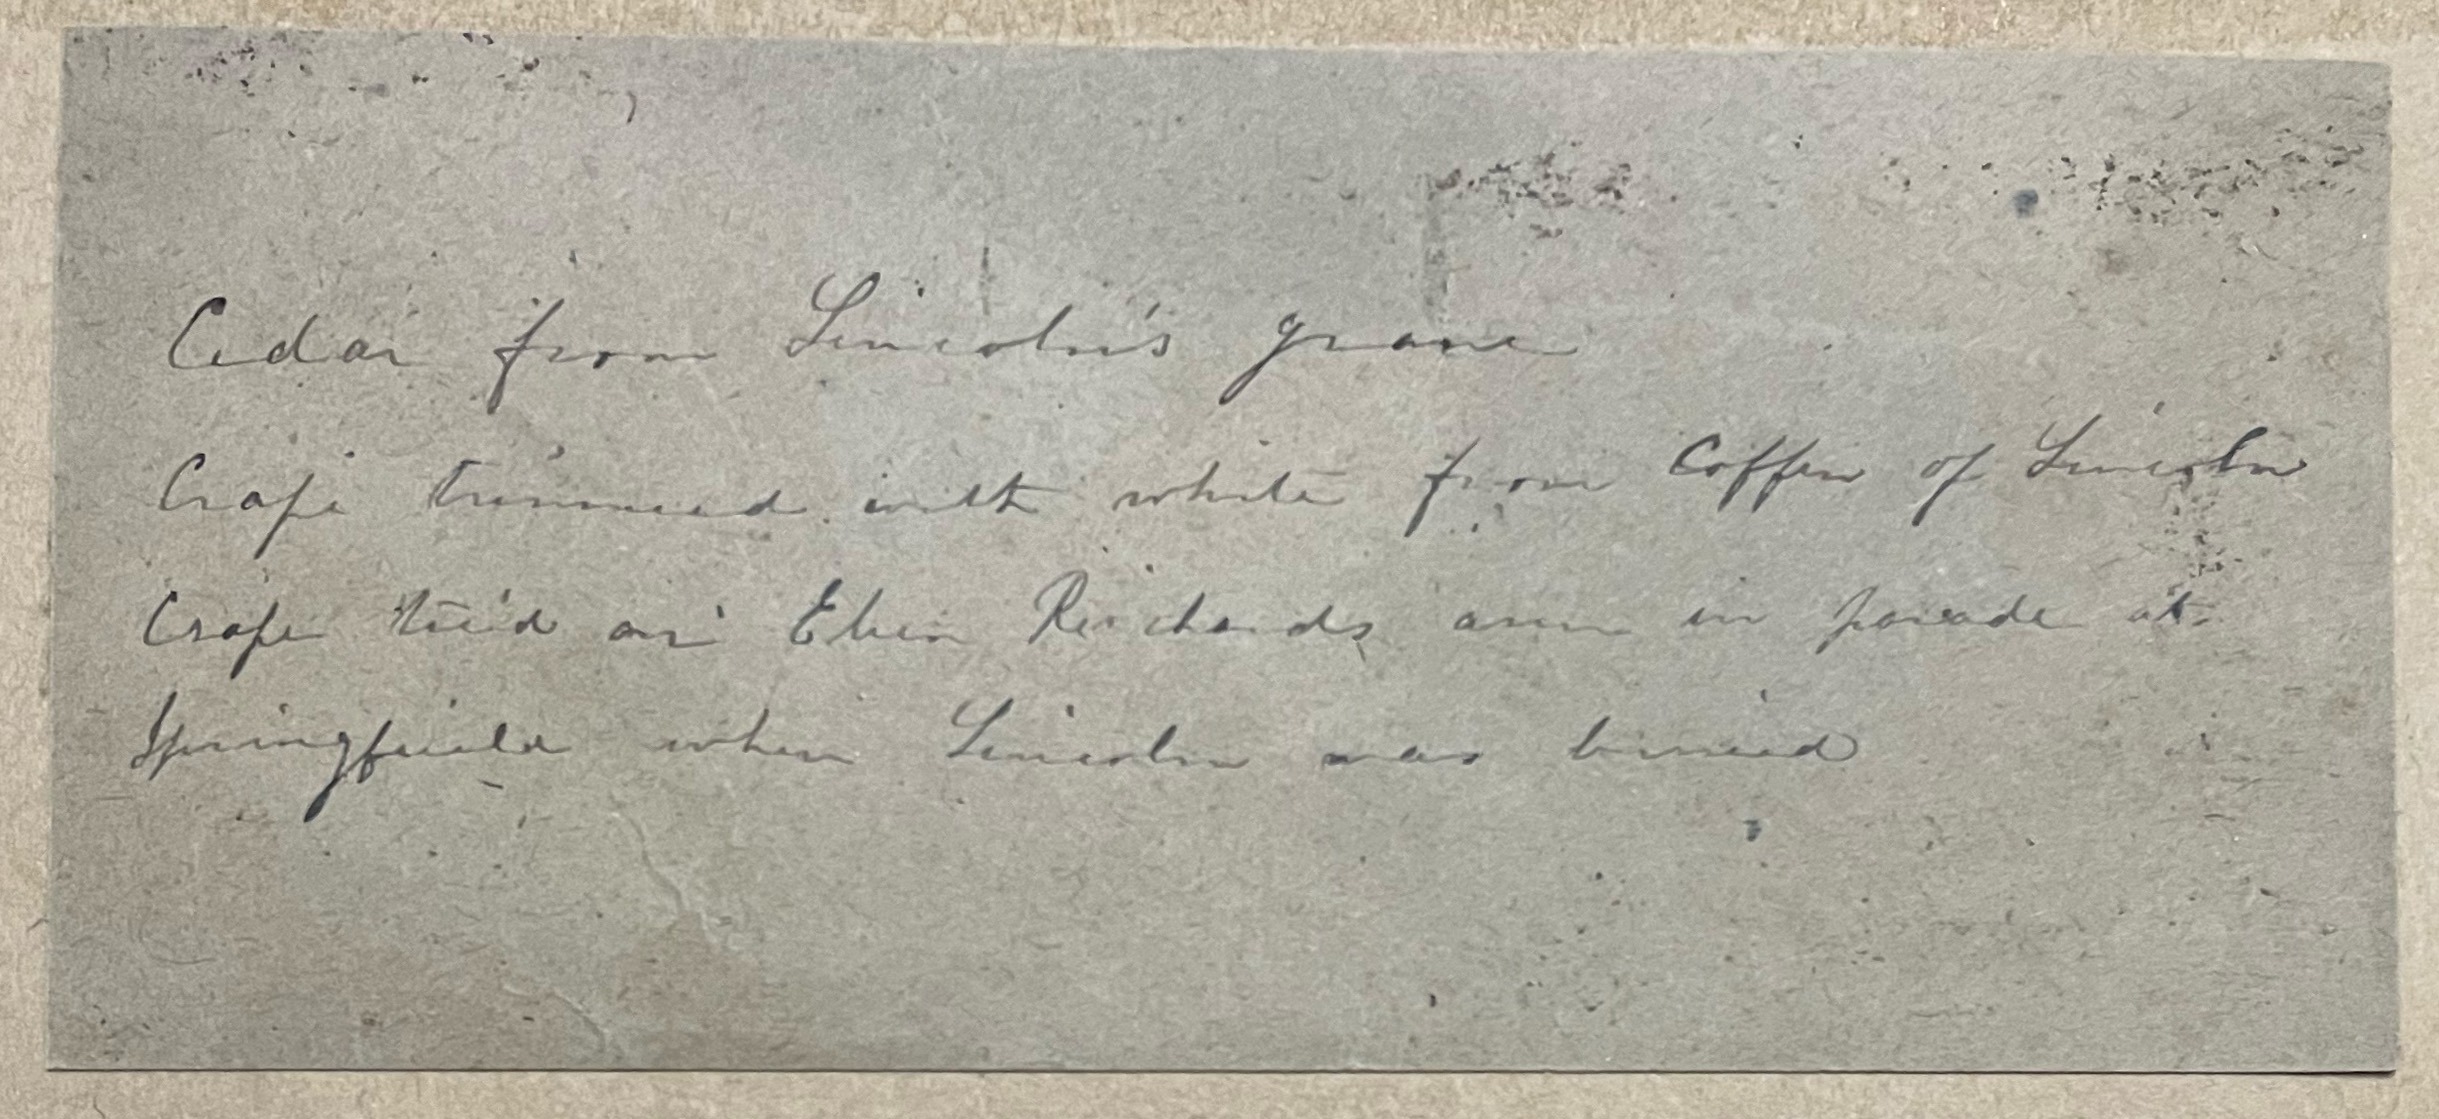 Cedar from Lincoln's grave
Crape trimmed with white from Coffin of Lincoln
Crape tied on Eben Richards arm in parade at
Springfield when Lincoln was buried